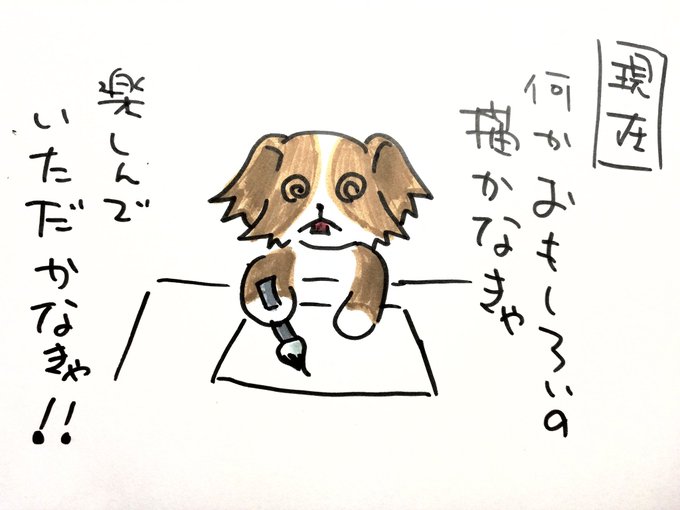 現在
何かおもしろいの
描かなきゃ
楽しんで
いただかなきゃ!!